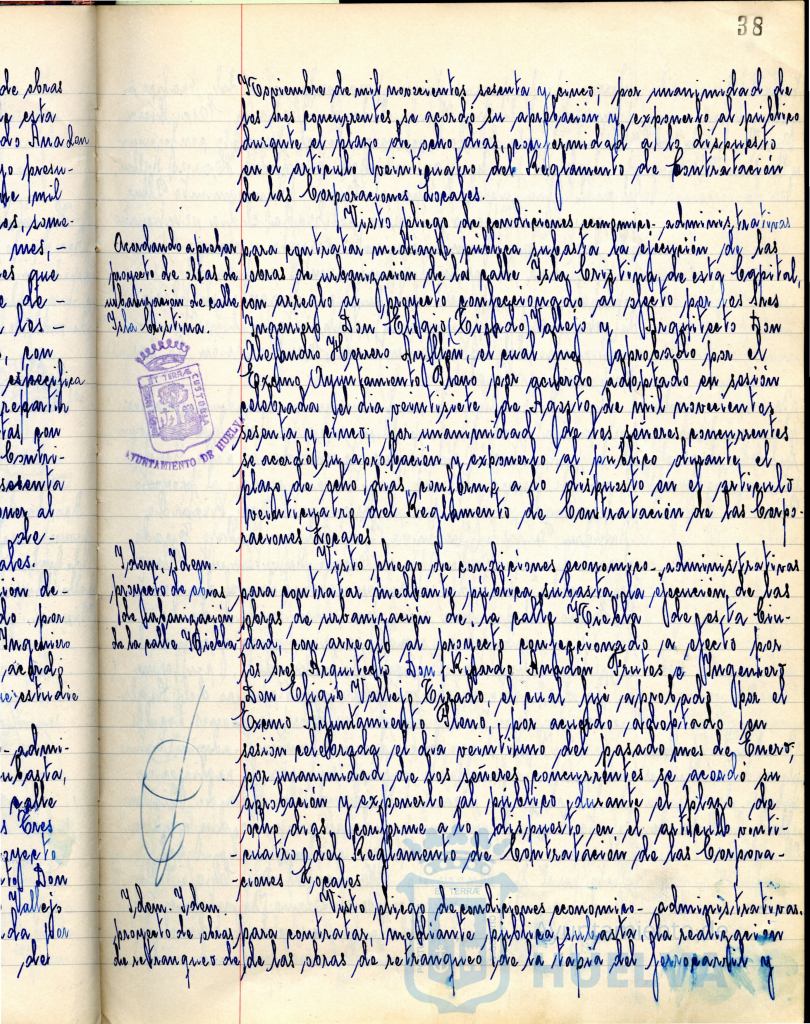 38
de obras
esta
do Anadon
presu-
mil
some-
mes,-
que
de-
los-
con
especifica
repartir
con
Contri-
sesenta
al
de-
ales.
ion de-
do por
Ingeniero
acordo
estudie
admi-
ubasta,
calle
Tres
oyecto
to Don
Vallejo
da por
del
Noviembre de mil novecientos sesenta y cinco; por unanimidad de
los Sres concurrentes se acordo su aprobación y exponerlo al publico
durante el plazo de ocho dias, conformidad a lo dispuesto
en el articulo veinticuatro del Reglamento de Contratación
de las Corporaciones Locales.
Acordando aprobar
proyecto de obras de
urbanización de calle
Isla Cristina.
Visto pliego de condiciones economico-administrativas
para contratar mediante publica subasta la ejecución de las
obras de urbanización de la calle Isla Cristina de esta Capital,
con arreglo al proyecto confeccionado al efecto por los Sres
Ingeniero Don Eligio (Tirado) Vallejo y Arquitecto Don
Alejandro Herrero Ayllón, el cual fue aprobado por el
Excmo Ayuntamiento Pleno por acuerdo adoptado en sesión
celebrada el dia veintisiete de Agosto de mil novecientos
sesenta y cinco; por unanimidad de los señores concurrentes
se acordó su aprobación y exponerlo al publico durante el
plazo de ocho dias, conforme a lo dispuesto en el articulo
veinticuatro del Reglamento de Contratación de las Corpo-
raciones Locales
AYUNTAMIENTO DE HUELVA
Idem. Idem.
proyecto de obras
de urbanización
de la calle Niebla
Visto pliego de condiciones economico-administrativas
para contratar mediante pública subasta la ejecución de las
obras de urbanización de la calle Niebla de esta Ciu-
dad, con arreglo al proyecto confeccionado a efecto por
los Sres Arquitecto Don Ricardo Anadón Frutos e Ingeniero
Don Eligio Vallejo Tirado, el cual fué aprobado por el
Excmo Ayuntamiento Pleno, por acuerdo adoptado en
sesión celebrada el dia veintiuno del pasado mes de Enero,
por unanimidad de los señores concurrentes se acordó su
aprobación y exponerlo al público durante el plazo de
ocho dias, conforme a lo dispuesto en el articulo vinti-
cuatro del Reglamento de Contratación de las Corpora-
ciones Locales
Idem. Idem.
proyecto de obras
de retranqueo de
Visto pliego de condiciones economico-administrativas.
para contratar, mediante pública subasta, la realización
de las obras de retranqueo de la tapia del ferrocarril y
HUELVA